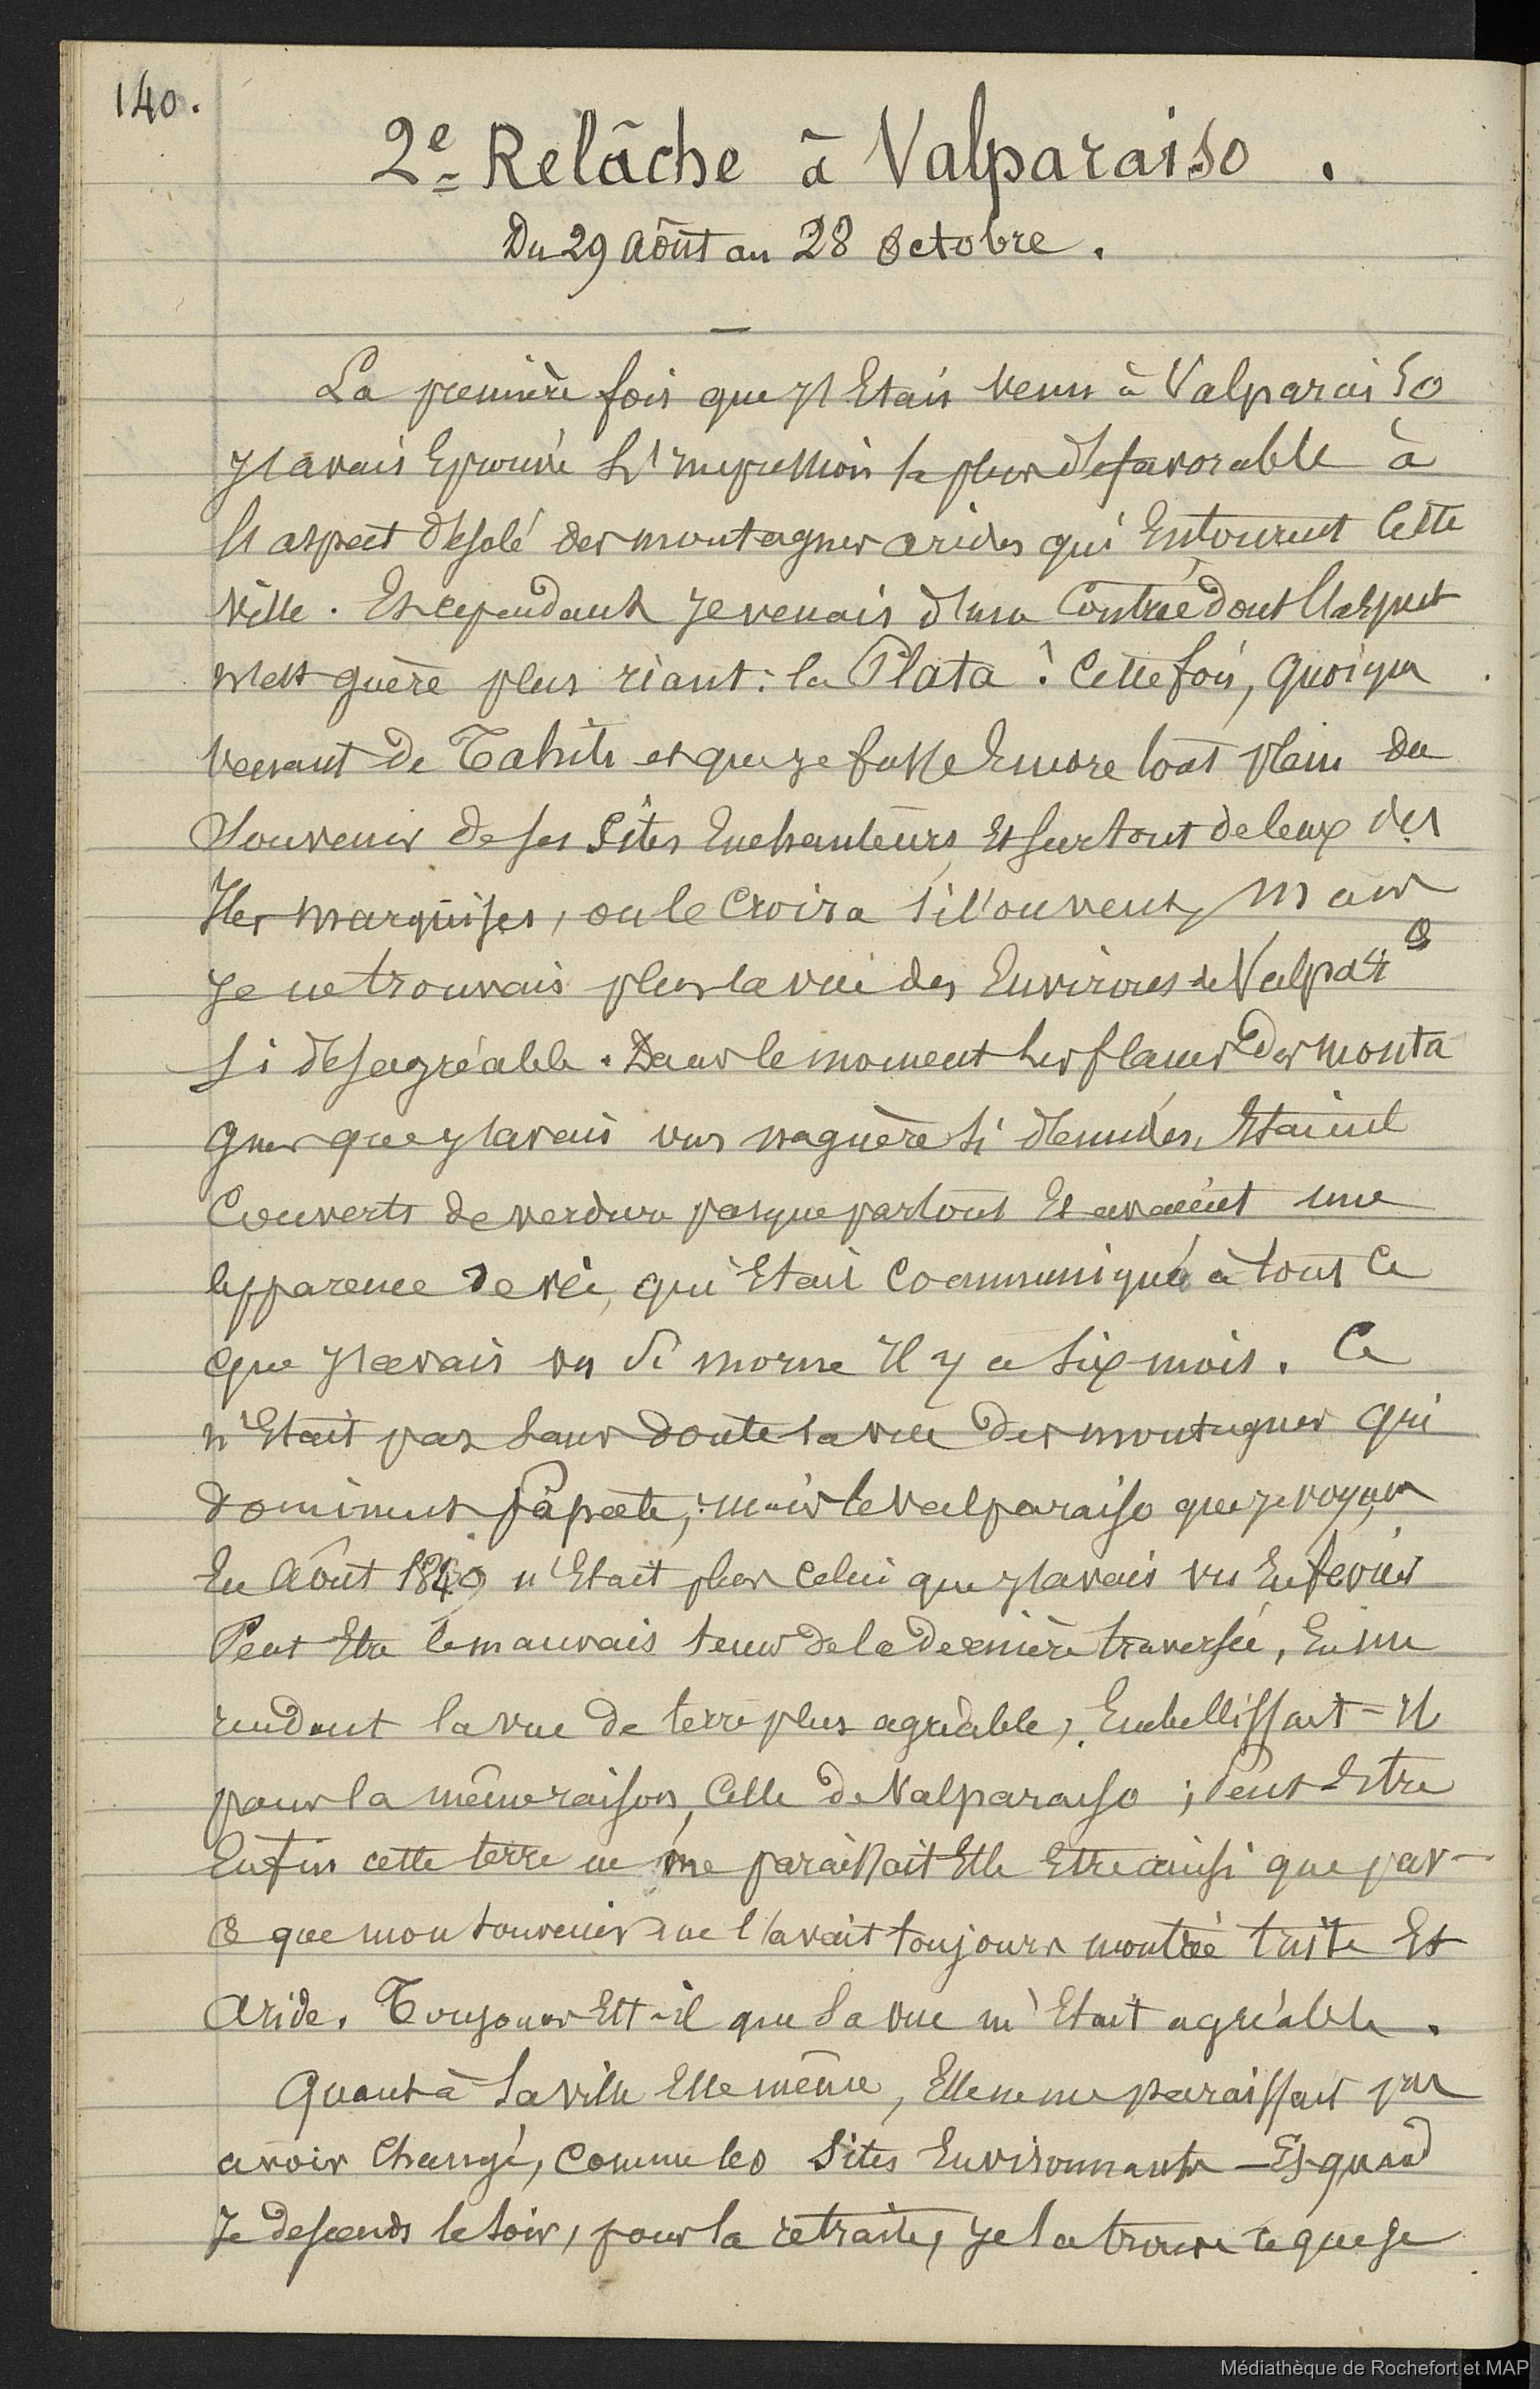 140.
2e Relâche à Valparaiso.
Du 29 Août au 28 Octobre.
La première fois que j'Etais venu à Valparaiso
j'avais Eprouvé l'impression la plus défavorable à
l'aspect désolé des montagnes arides qui Entourent Cette
ville. Et cependant je venais d'une Contrée dont l'aspect
n'est guère plus riant : la Plata ! Cette fois, quoique
venant de Tahiti et que je fusse Encore tout plein du
Souvenir de ses Sites Enchanteurs, Et surtout de ceux des
Iles Marquises, on le Croira si l'on veut, Mais
je ne trouvais plus la vue des Environs de Valparso
si désagréable. Dans le moment les flancs des monta
gnes que j'avais vus naguère si dénudés, Etaient
Couverts de verdure presque partout Et avaient une
apparence de vie, qui Etait Communiqué à tout Ce
que j'avais vu si morne Il y a Six mois. Ce
n'Etait pas sans doute la vue des montagnes qui
dominent Papeete, mais le Valparaiso que je voyais
En Août 1849 n'Etait plus Celui que j'avais vu En fevrier
Peut Etre le mauvais tems de la dernière traversée, En me
rendant la vue de terre plus agréable, Embellissait-Il
pour la même raison, Celle de Valparaiso ; Peut Etre
Enfin cette terre ne me paraissait Elle Etre ainsi que par-
Ce que mon souvenir me l'avait toujours montrée triste Et
Aride. Toujours Est-il que Sa vue m'Etait agréable.
Quant à la ville Elle même, Elle ne me paraissait pas
avoir Changé, Comme les Sites Environnants – Et quand
Je descends le soir, pour la retraite, je la trouve ce que je
Médiathèque de Rochefort et MAP